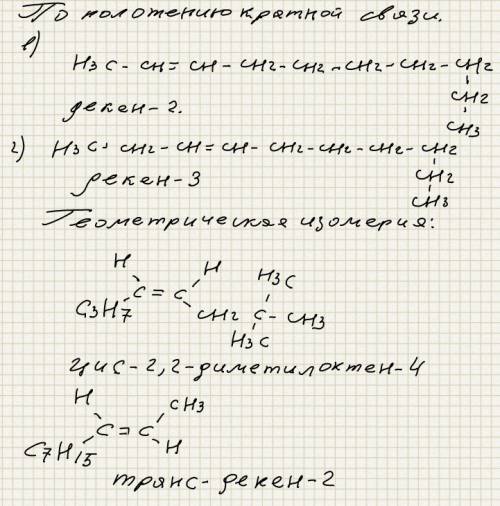 По положению кратной связи.
1)
H3C - CH = CH - CH2 - CH2 - CH2 - CH2 - CH2
CH2
CH3
декен-2.
2) H3C - CH2 - CH = CH - CH2 - CH2 - CH2 - CH2
CH2
CH3
декен-3
Геометрическая изомерия:
H H H3C
C3H7 C = C CH2 C - CH3
H3C
цис-2,2-диметилоктен-4
H CH3
C = C
C7H15 H
транс-декен-2